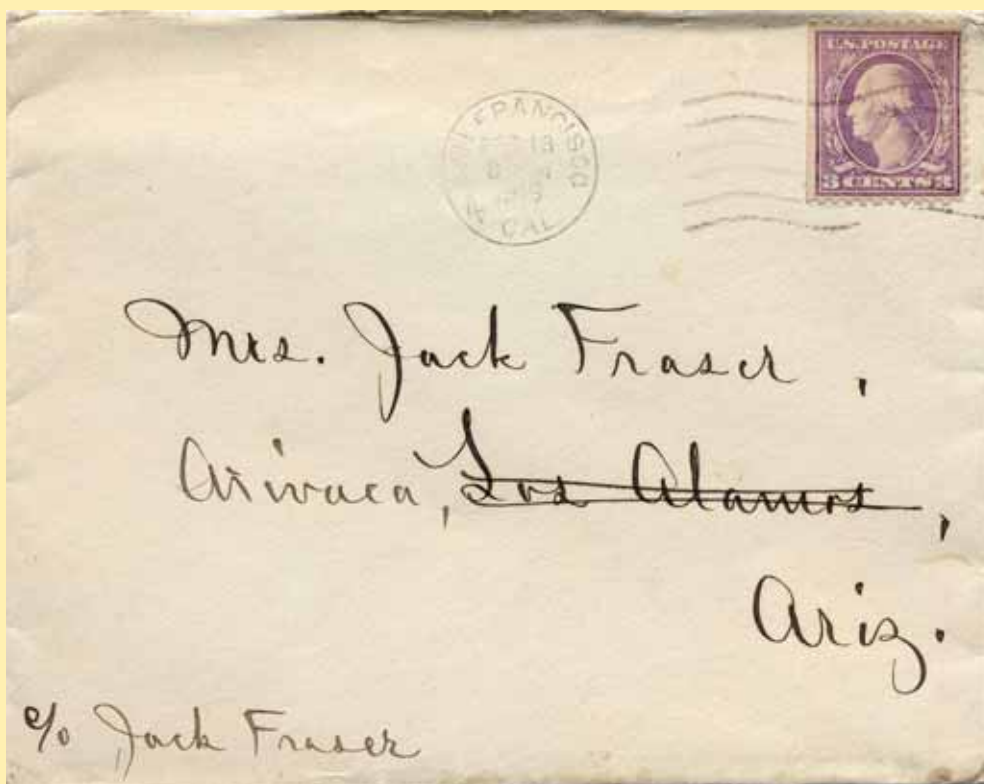 U.S. POSTAGE
3 CENTS 3
FRANCISCO
CAL
Mrs. Jack Fraser,
Arivaca, Los Alamos,
Ariz.
c/o Jack Fraser